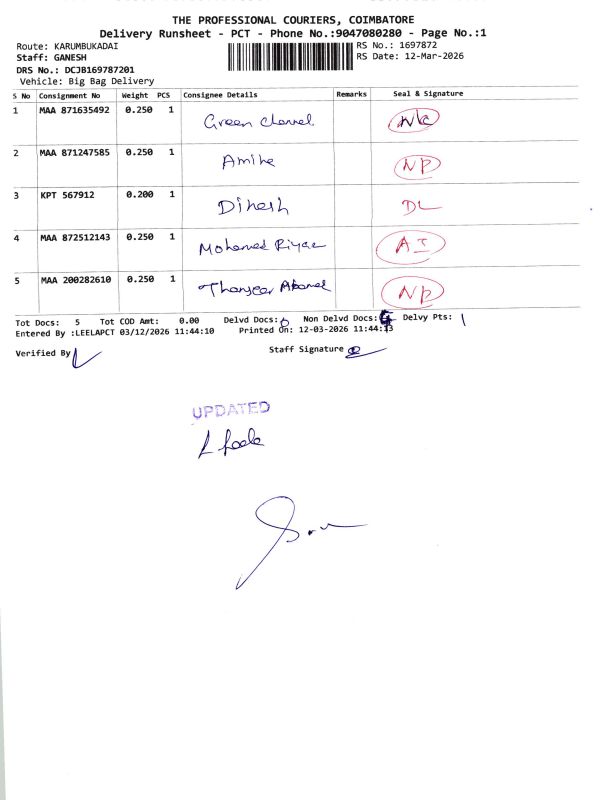 THE PROFESSIONAL COURIERS, COIMBATORE
Delivery Runsheet - PCT - Phone No.:9047080280 - Page No.:1
Route: KARUMBUKADAI RS No.: 1697872
Staff: GANESH RS Date: 12-Mar-2026
DRS No.: DCJB169787201
Vehicle: Big Bag Delivery
S No Consignment No Weight PCS Consignee Details Remarks Seal & Signature
1 MAA 871635492 0.250 1 Green channel
2 MAA 871247585 0.250 1 NP
3 KPT 567912 0.200 1 Dinesh DL
4 MAA 872512143 0.250 1 Mohamed Riyaz AI
5 MAA 200282610 0.250 1 NP
Tot Docs: 5 Tot COD Amt: 0.00 Delvd Docs: Non Delvd Docs: Delvy Pts: 1
Entered By :LEELAPCT 03/12/2026 11:44:10 Printed On: 12-03-2026 11:44:13
Verified By Staff Signature
UPDATED